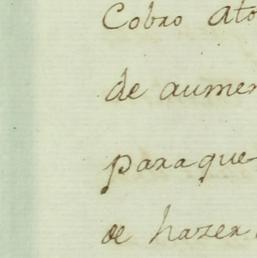 Cobro ato
de aumen
paraque
de hazer